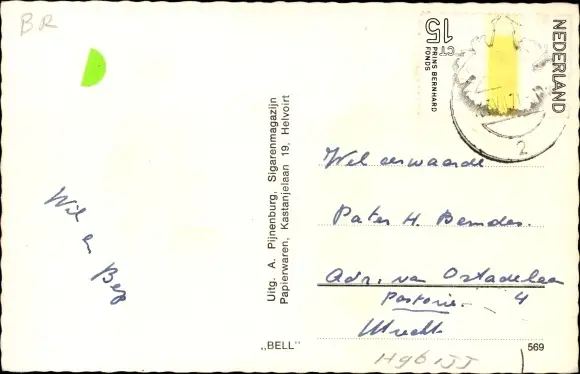 BR
15
CT
PRINS BERNHARD
FONDS
NEDERLAND
2
Wil en Bep
Uitg. A. Pijnenburg, Sigarenmagazijn
Papierwaren, Kastanjelaan 19, Helvoirt
„BELL"
Wel eerwaarde
Pater H. Berndes.
Adr. van Ostadelaan
Pastorie. 4
Utrecht
569